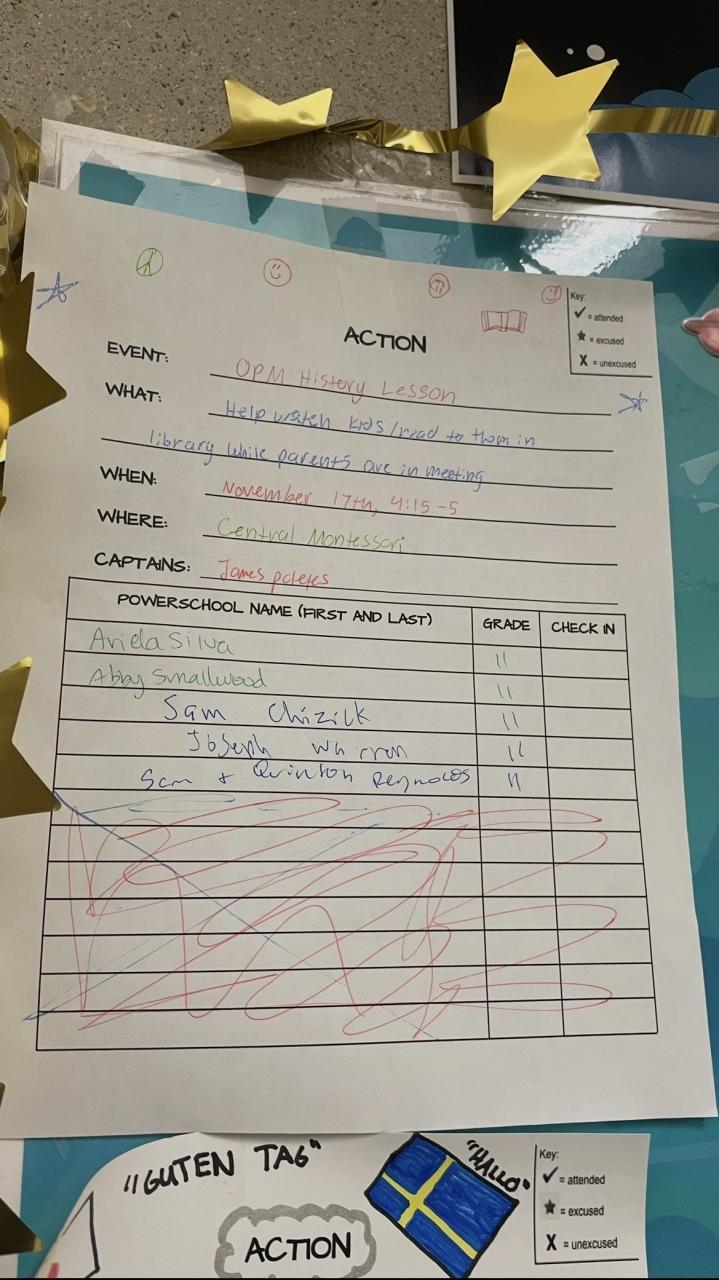 Key:
✓ = attended
★ = excused
X = unexcused
ACTION
EVENT: OPM History Lesson
WHAT: Help watch kids/read to them in
library while parents are in meeting
WHEN: November 17th, 4:15-5
WHERE: Central Montessori
CAPTAINS: James
POWERSCHOOL NAME (FIRST AND LAST) GRADE CHECK IN
Ariela Silva 11
Abby Smallwood 11
Sam Chizilk 11
Joseph Warren 11
Sam + Quinton Reynolds 11
"GUTEN TAG"
"HALLO"
ACTION
Key:
✓ = attended
★ = excused
X = unexcused